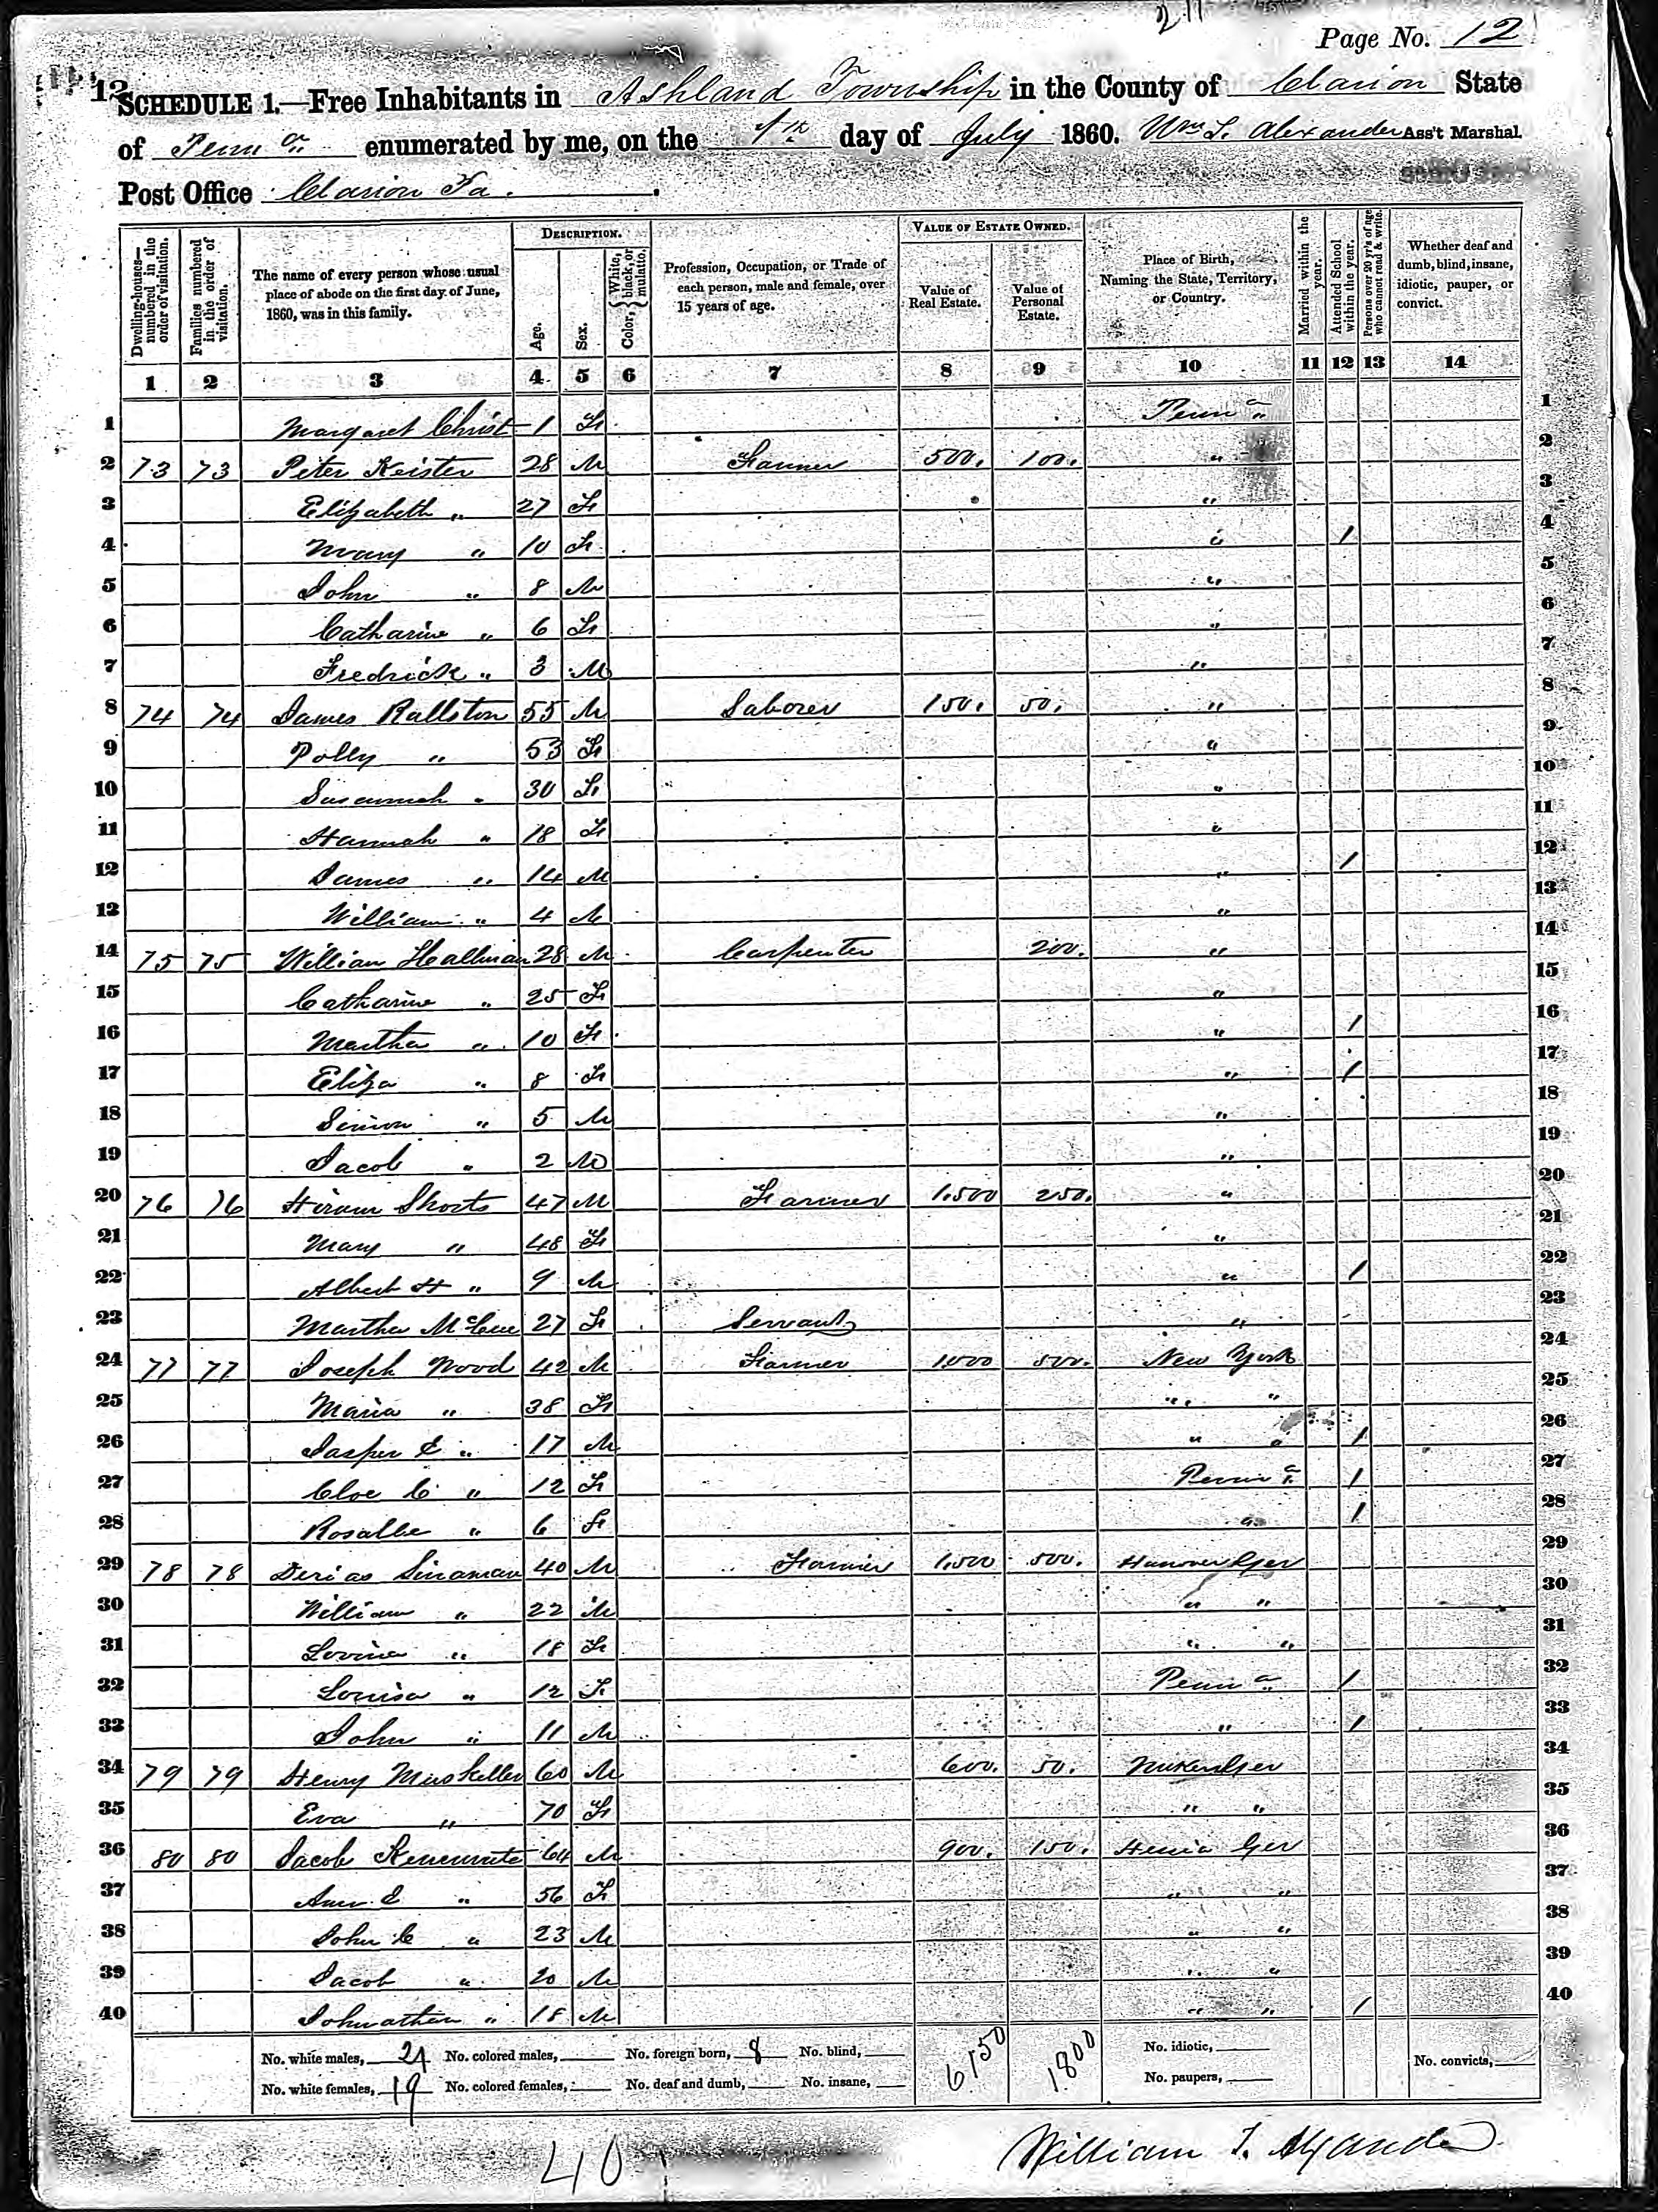 Page No. 12
SCHEDULE 1.—Free Inhabitants in Ashland Township in the County of Clarion State
of Penna enumerated by me, on the 7th day of July 1860. Wm T. Alexander Ass't Marshal.
Post Office Clarion Pa.
Dwelling-houses—numbered in the order of visitation.
Families numbered in the order of visitation.
The name of every person whose usual place of abode on the first day of June, 1860, was in this family.
DESCRIPTION.
Age.
Sex.
Color, { White, black, or mulatto.
Profession, Occupation, or Trade of each person, male and female, over 15 years of age.
VALUE OF ESTATE OWNED.
Value of Real Estate.
Value of Personal Estate.
Place of Birth, Naming the State, Territory, or Country.
Married within the year.
Attended School within the year.
Persons over 20 yr's of age who cannot read & write.
Whether deaf and dumb, blind, insane, idiotic, pauper, or convict.
1 2 3 4 5 6 7 8 9 10 11 12 13 14
1 Margaret Christ 1 F Penna 1
2 73 73 Peter Keister 28 M Farmer 500. 100. " 2
3 Elizabeth " 27 F " 3
4 Mary " 10 F " / 4
5 John " 8 M " 5
6 Catharine " 6 F " 6
7 Fredrick " 3 M " 7
8 74 74 James Rallston 55 M Laborer 150. 50. " 8
9 Polly " 53 F " 9
10 Susannah " 30 F " 10
11 Hannah " 18 F " 11
12 James " 14 M " / 12
13 William " 4 M " 13
14 75 75 William Hallman 28 M Carpenter 200. " 14
15 Catharine " 25 F " 15
16 Martha " 10 F " / 16
17 Eliza " 8 F " / 17
18 Simon " 5 M " 18
19 Jacob " 2 M " 19
20 76 76 Hiram Shorts 47 M Farmer 1.500 250. " 20
21 Mary " 48 F " 21
22 Albert H " 9 M " / 22
23 Martha McCue 27 F Servant " 23
24 77 77 Joseph Wood 42 M Farmer 1000 500. New York 24
25 Maria " 38 F " " 25
26 Jasper E " 17 M " " / 26
27 Cloe C " 12 F Penna / 27
28 Rosalbe " 6 F " / 28
29 78 78 Sinaman 40 M Farmer 1.500 500. Hanover Ger 29
30 William " 22 M " " 30
31 Lovina " 18 F " " 31
32 Louisa " 12 F Penna / 32
33 John " 11 M " / 33
34 79 79 Henry 60 M 600. 50. 34
35 Eva " 70 F " " 35
36 80 80 Jacob 64 M 900. 150. Ger 36
37 " 56 F " " 37
38 John C " 23 M " " 38
39 Jacob " 20 M " " 39
40 Johnathan " 18 M " " / 40
No. white males, 21 No. colored males, No. foreign born, 8 No. blind, 6150 1800 No. idiotic, No. convicts,
No. white females, 19 No. colored females, No. deaf and dumb, No. insane, No. paupers,
40
William T. Alexander